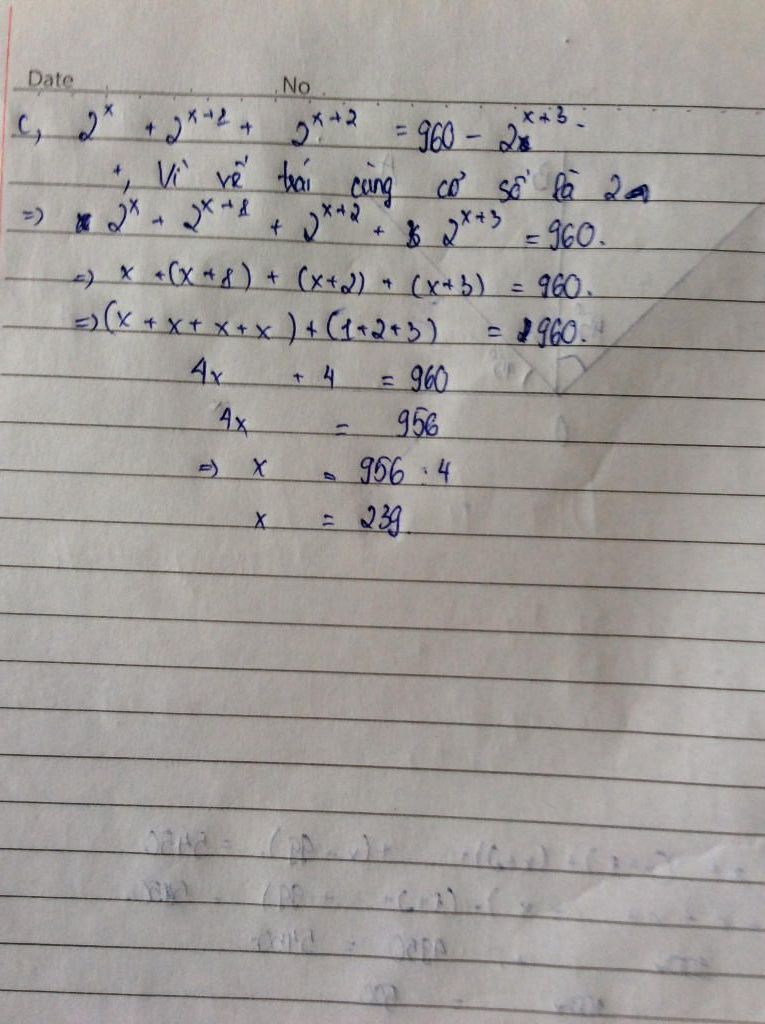 Date No
c, 2^x + 2^{x+1} + 2^{x+2} = 960 - 2^{x+3}.
+, Vì vế trái cùng cơ số là 2
=> 2^x + 2^{x+1} + 2^{x+2} + 2^{x+3} = 960.
=> x + (x+1) + (x+2) + (x+3) = 960.
=> (x + x + x + x) + (1+2+3) = 960.
4x + 4 = 960
4x = 956
=> x = 956 : 4
x = 239